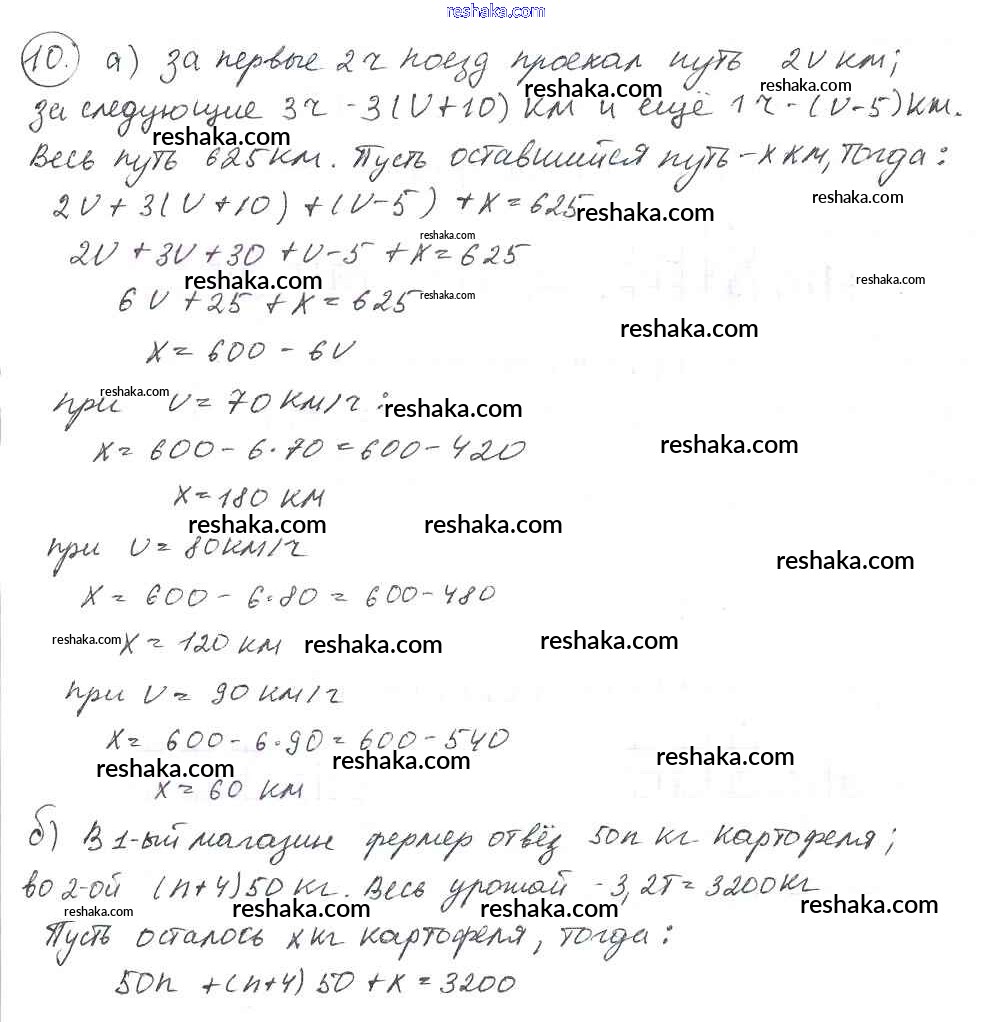 reshaka.com
10. а) За первые 2 ч поезд проехал путь 2V км;
reshaka.com reshaka.com
за следующие 3 ч - 3(V+10) км и ещё 1 ч - (V-5) км.
reshaka.com
Весь путь 625 км. Пусть оставшийся путь - x км, тогда:
reshaka.com
2V + 3(V+10) + (V-5) + x = 625
reshaka.com
reshaka.com
2V + 3V + 30 + V - 5 + x = 625
reshaka.com reshaka.com
6V + 25 + x = 625
reshaka.com
reshaka.com
x = 600 - 6V
reshaka.com
при V = 70 км/ч:
reshaka.com
x = 600 - 6·70 = 600 - 420
reshaka.com
x = 180 км
reshaka.com reshaka.com
при V = 80 км/ч
reshaka.com
x = 600 - 6·80 = 600 - 480
reshaka.com x = 120 км reshaka.com reshaka.com
при V = 90 км/ч
x = 600 - 6·90 = 600 - 540
reshaka.com reshaka.com reshaka.com
x = 60 км
б) В 1-ый магазин фермер отвёз 50n кг картофеля;
во 2-ой (n+4)50 кг. Весь урожай - 3,2т = 3200кг
reshaka.com reshaka.com reshaka.com reshaka.com
Пусть осталось x кг картофеля, тогда:
50n + (n+4) 50 + x = 3200